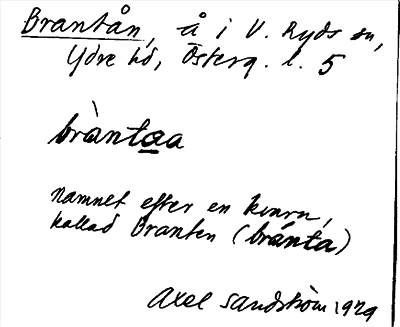 Brantån, å i V. Ryds sn,
Ydre hd, Österg. l. 5
bràntaa
namnet efter en kvarn,
kallad Branten (bránta)
Axel Sandström 1929